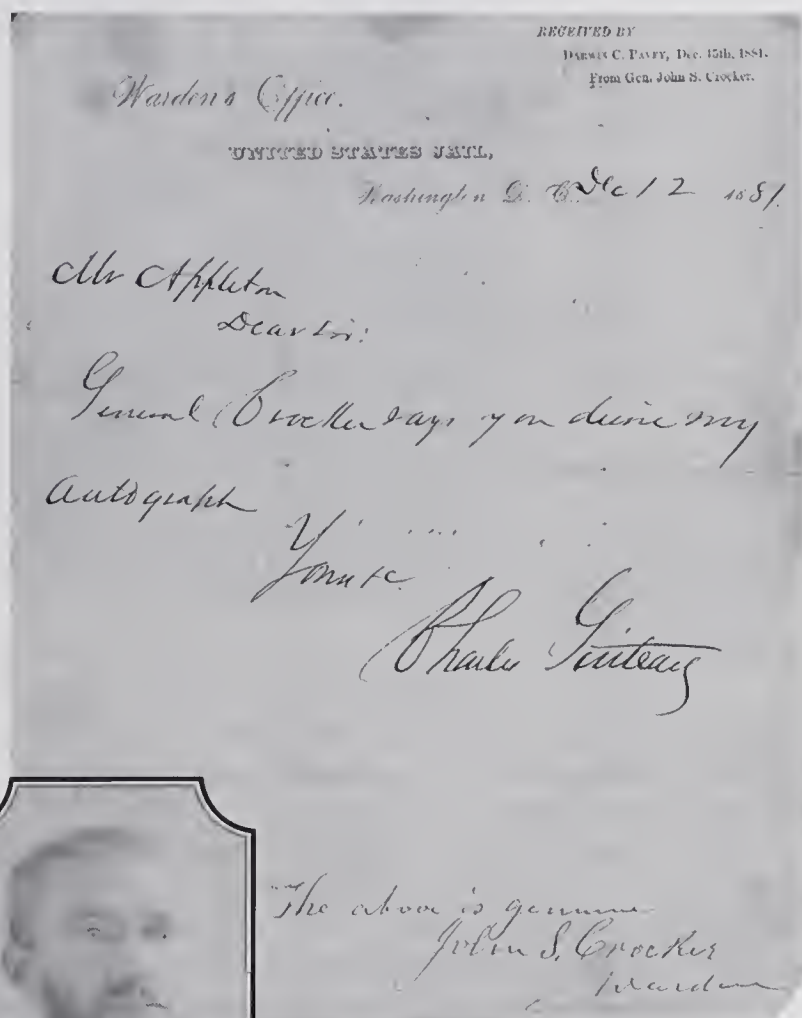 RECEIVED BY
DARWIN C. PAVEY, Dec. 15th, 1881.
From Gen. John S. Crocker.
Warden's Office.
UNITED STATES JAIL,
Washington D. C. Dec 12 1881.
Mr Appleton
Dear Sir:
General Crocker says you desire my
autograph
Yours &c.
Charles Guiteau
The above is genuine
John S. Crocker
Warden